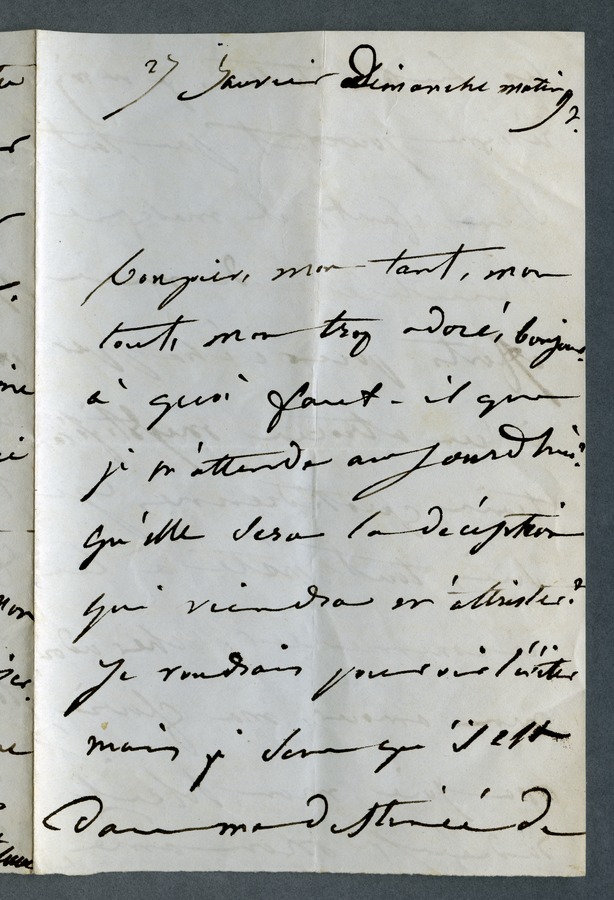 27 Janvier Dimanche matin 9h.
bonjour, mon tant, mon
tout, mon trop adoré, bonjour.
à quoi faut-il que
je m'attende aujourd'hui?
qu'elle sera la déception
qui viendra m'attrister?
Je voudrais pouvoir l'éviter
mais je sens qu'il est
dans ma destinée de